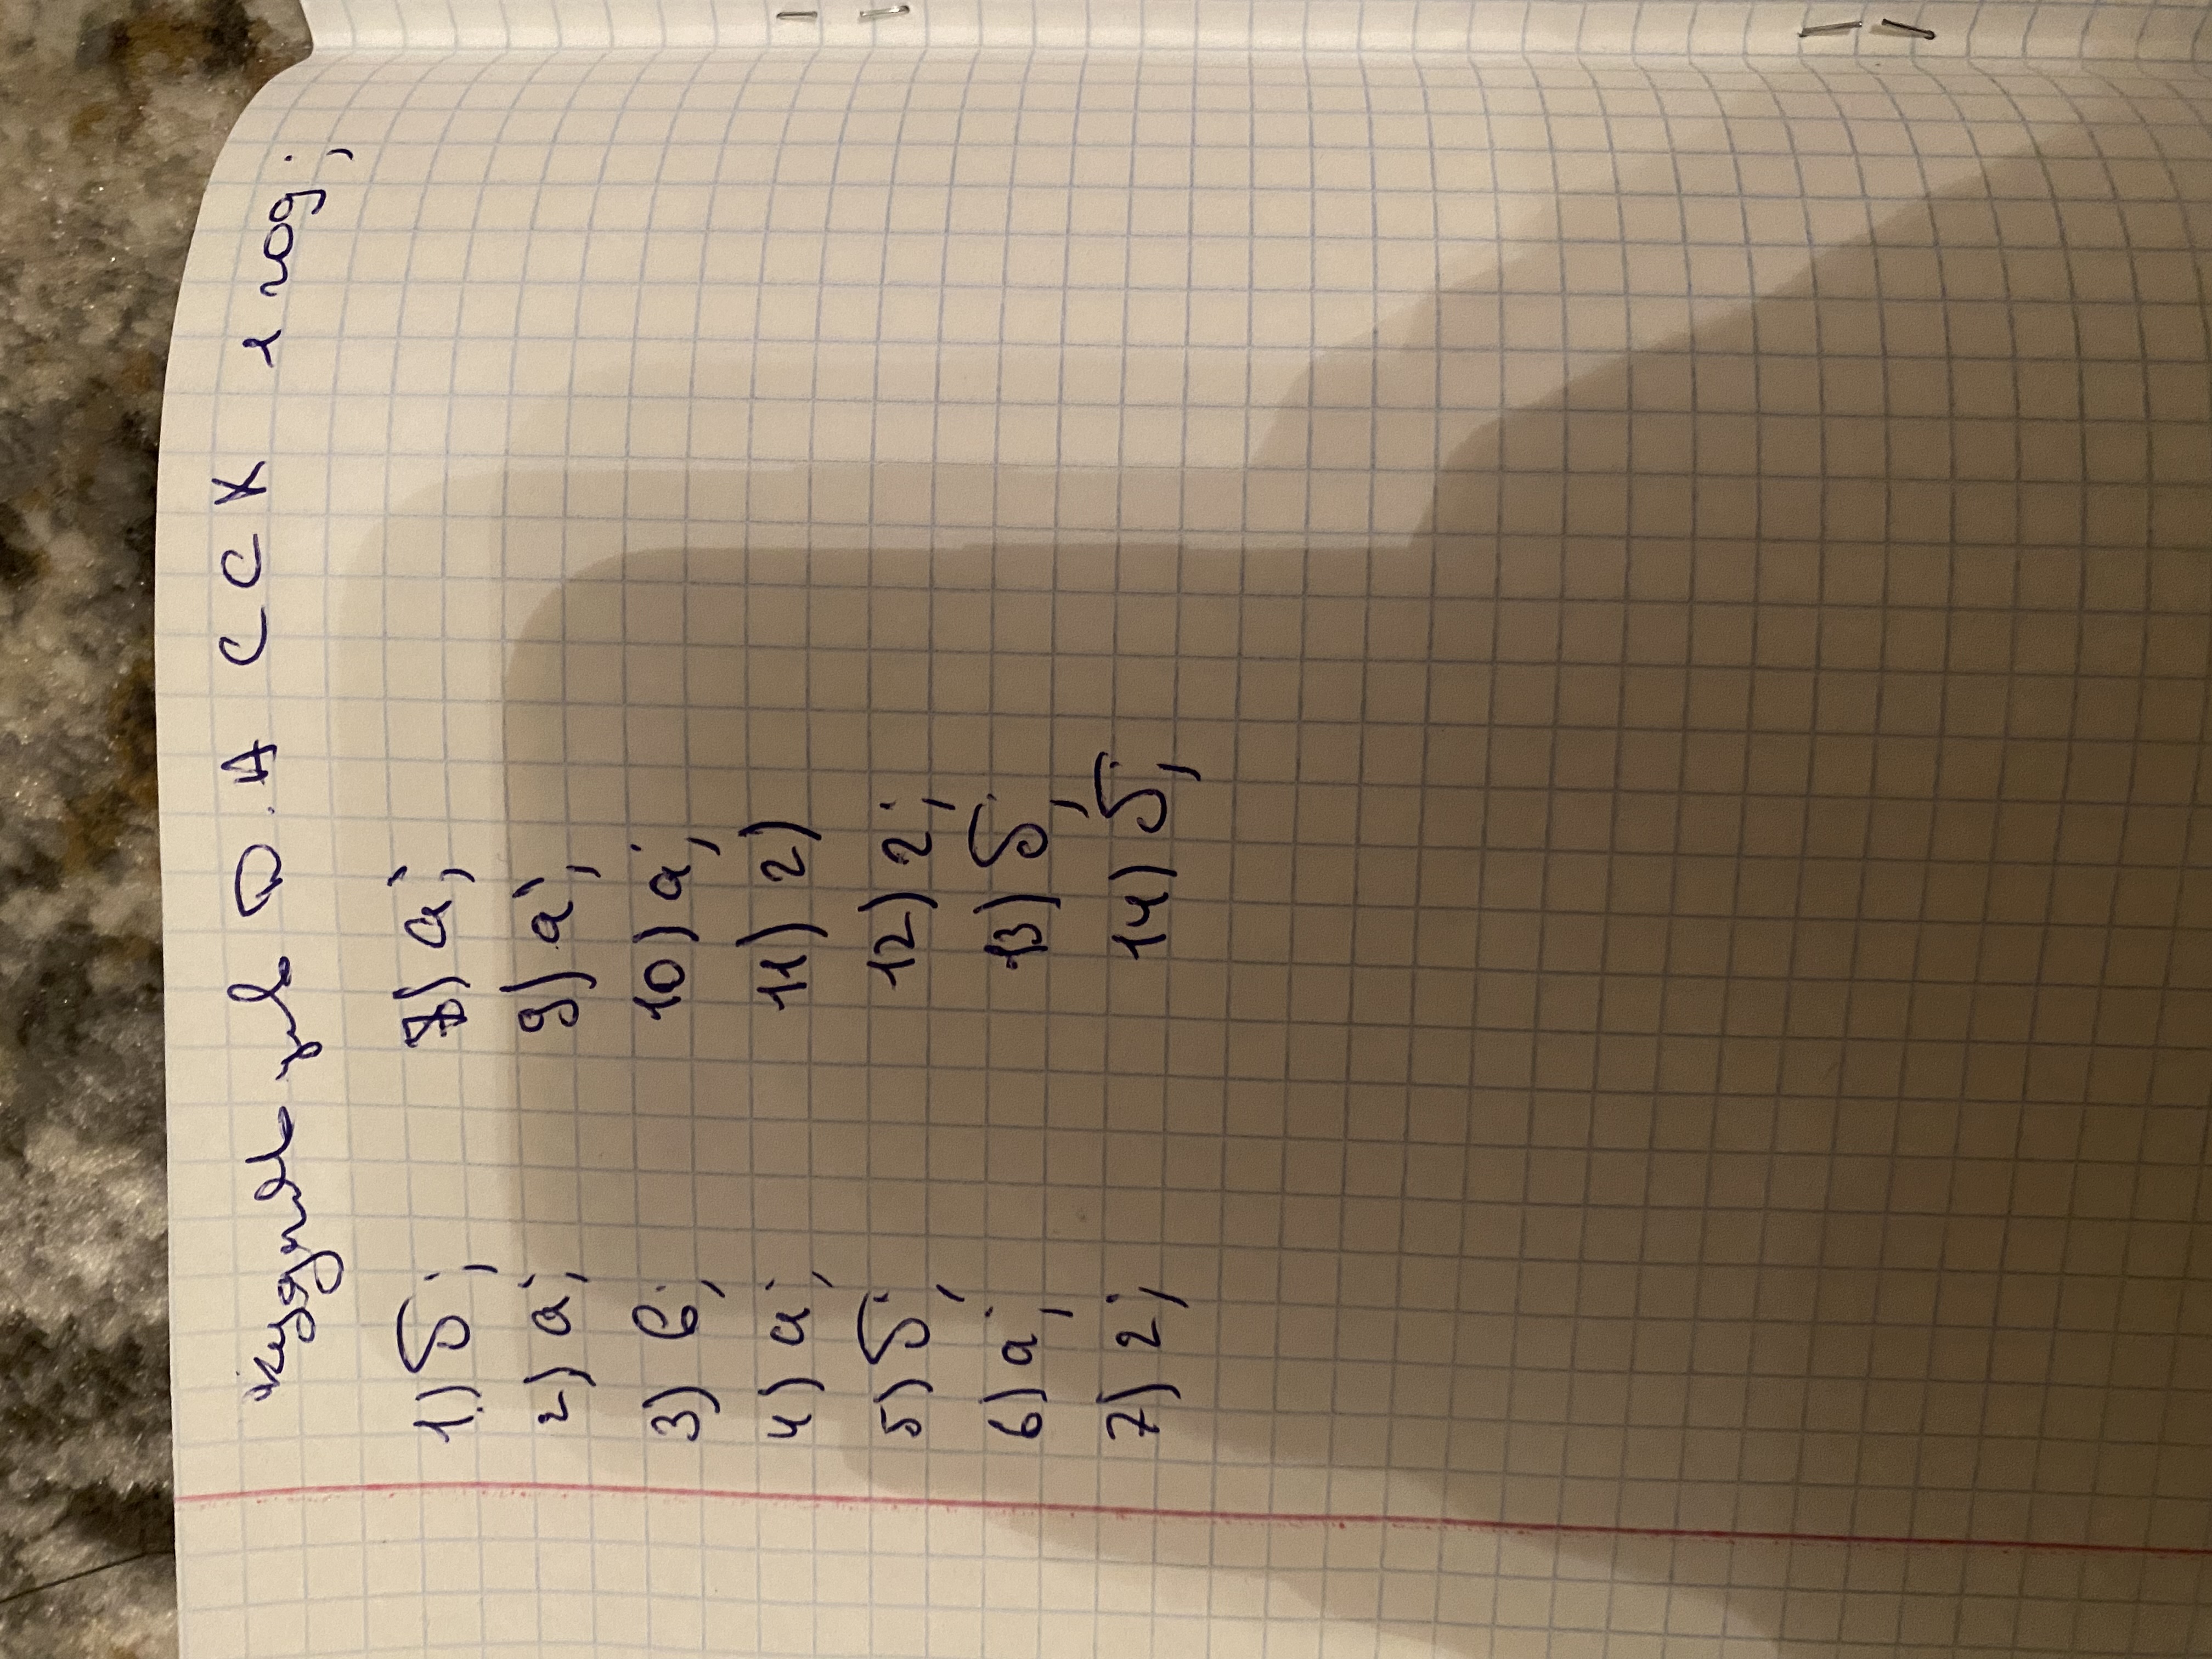 Д.А ССК 1 год;
1) б;
2) а;
3) в;
4) а;
5) б;
6) а;
7) г;
8) а;
9) а;
10) а;
11) г)
12) г;
13) б;
14) б;